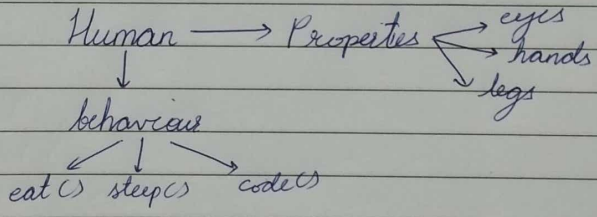 Human → Properties → eyes
→ hands
→ legs
behaviour
eat() sleep() code()